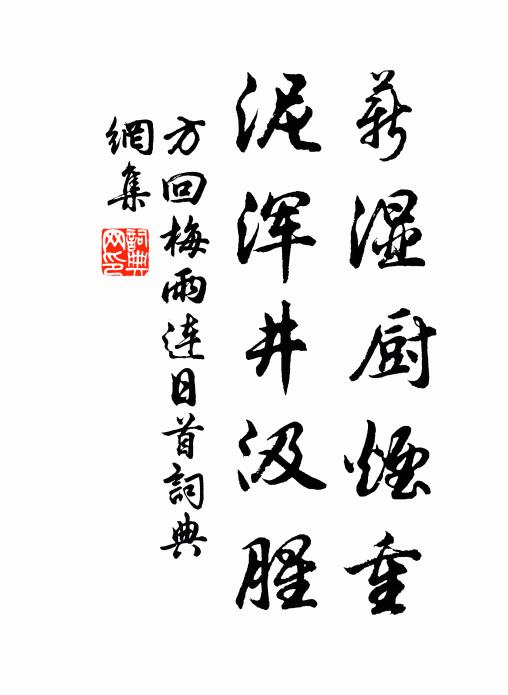 薪湿厨煙重
泥浑井汲腥
方回梅雨连日首詞典
網集
詞典网印